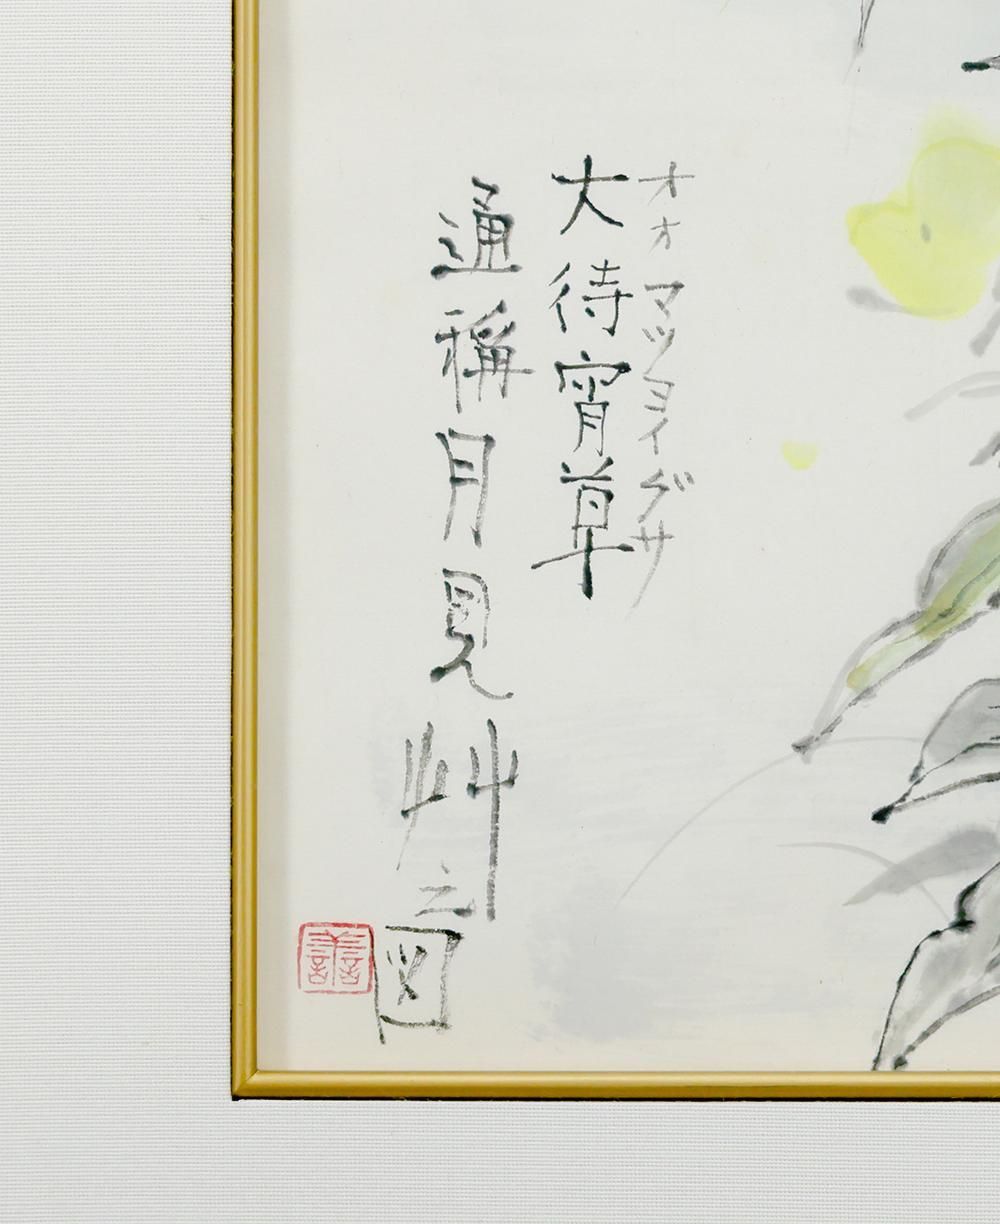 オオマツヨイグサ
大待宵草
通稱月見艸之図